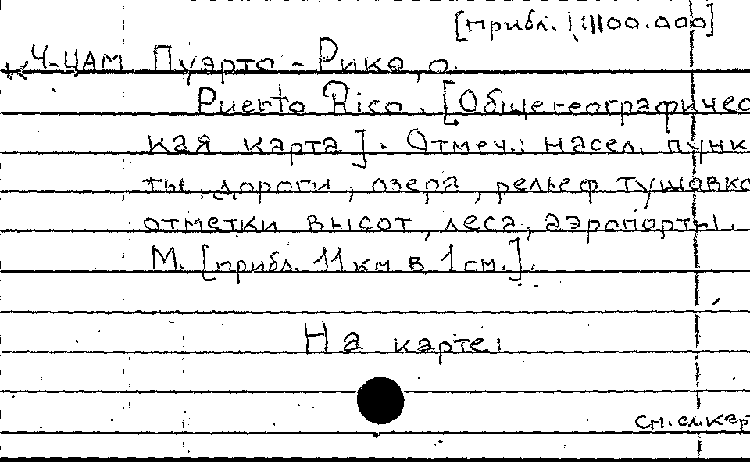 [прибл. 1:1100.000]
Ч-ЦАМ Пуэрто-Рико, о.
Puerto Rico. [Общегеографичес
кая карта]. Отмеч.: насел. пунк
ты, дороги, озера, рельеф тушевко
отметки высот, леса, аэропорты.
М. [прибл. 11 км в 1 см.].
На карте:
см. сл. кар